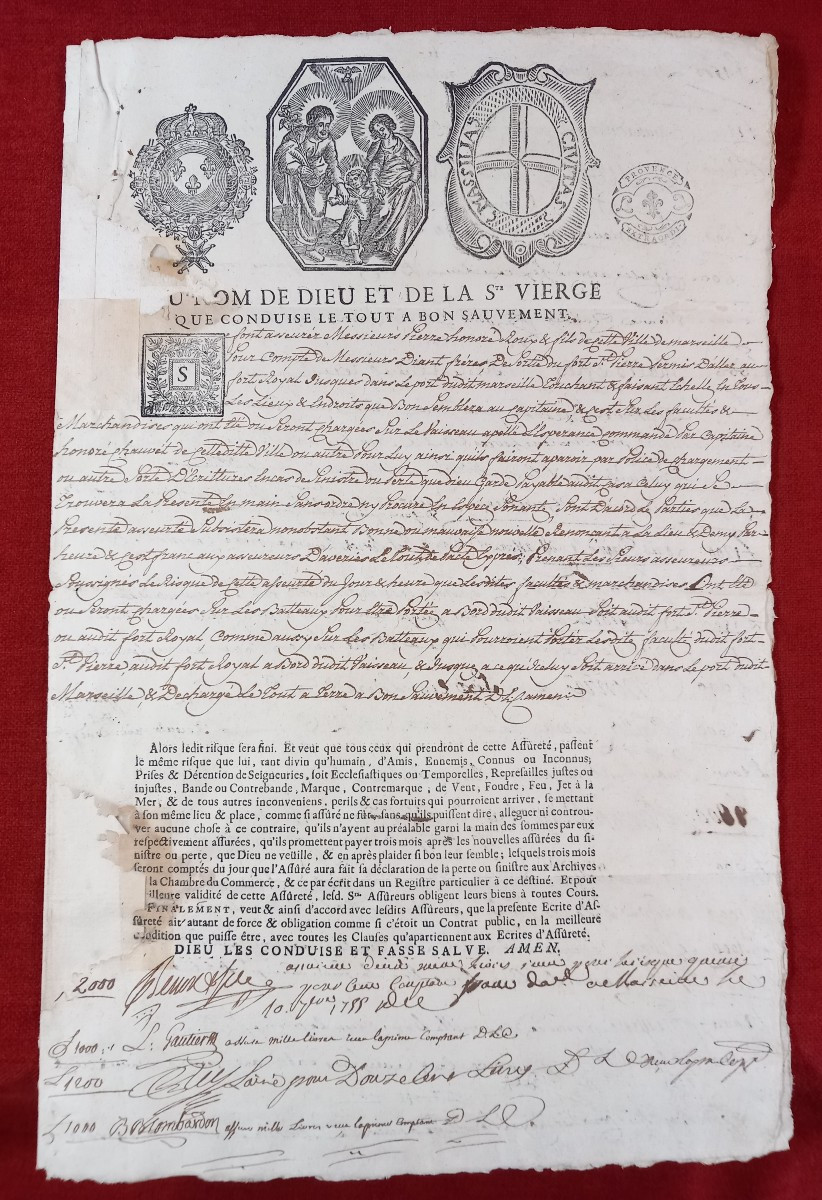 MASSILIA CIVITAS
PROVENCE
U NOM DE DIEU ET DE LA Ste VIERGE
QUE CONDUISE LE TOUT A BON SAUVEMENT.
S
font asseurér Messieurs Pierre honoré Roux & fils de cette Ville de marseille
Pour Compte de Messieurs Diant freres De Sortie du fort St. Pierre Permis Daller au
fort Royal Jusques dans Le port dudit marseille Touchant & faisant Echelle En Tous
Les Lieux & Endroits que Bon Semblera au Capitaine & c'est Sur Les facultés &
Marchandises qui ont Eté ou Seront chargées Sur Le Vaisseau apellé L'Esperance Commandé Par Capitaine
honoré chauvet de cette ditte Ville ou autre Pour Luy ainsi quils fairont aparoir par Police de chargement
ou autre Sorte D'Ecrittures En cas de Sinistre ou Perte que dieu Garde Payable audit cas a Celuy qui Se
Trouvera La Presente En main Sans ordre ny Procure En Espéce Sonante Sont D'acord Les Parties que La
Presente asseurté Subsistera nonobstant Bonne ou mauvaise nouvelle Renonçant a La Lieu & Demy Par
heure & c'est franc aux asseureurs D'averies Le tout de Pacte Exprés, Prenant Les Sieurs asseureurs
Soussignés Le Risque de cette asseurté du Jour & heure que Lesdites facultés & marchandises Ont Eté
ou Seront chargées Sur Les Batteaux Pour Etre Portés a Bord dudit Vaisseau Soit audit fort St. Pierre
ou audit fort Royal Comme aussy Sur Les Batteaux qui Pourroient Porter Lesdits facultés dudit fort
St. Pierre audit fort Royal a Bord dudit Vaisseau & Jusque a ce qu'Icelluy Soit arrivé dans Le port dudit
Marseille & Dechargé Le Tout a Terre a Bon Sauvement D. L. C. amen
Alors ledit risque sera fini. Et veut que tous ceux qui prendront de cette Assûreté, passent
le même risque que lui, tant divin qu'humain, d'Amis, Ennemis, Connus ou Inconnus;
Prises & Détention de Seigneuries, soit Ecclesiastiques ou Temporelles, Represailles justes ou
injustes, Bande ou Contrebande, Marque, Contremarque; de Vent, Foudre, Feu, Jet à la
Mer, & de tous autres inconveniens, perils & cas fortuits qui pourroient arriver, se mettant
à son même lieu & place, comme si assûré ne fût, sans qu'ils puissent dire, alleguer ni controu-
ver aucune chose à ce contraire, qu'ils n'ayent au préalable garni la main des sommes par eux
respectivement assurées, qu'ils promettent payer trois mois après les nouvelles assurées du si-
nistre ou perte, que Dieu ne veüille, & en après plaider si bon leur semble; lesquels trois mois
seront comptés du jour que l'Assûré aura fait sa déclaration de la perte ou sinistre aux Archives
la Chambre du Commerce, & ce par écrit dans un Registre particulier à ce destiné. Et pour
illeure validité de cette Assûreté, lesd. Srs Assureurs obligent leurs biens à toutes Cours.
FINALEMENT, veut & ainsi d'accord avec lesdits Assûreurs, que la presente Ecrite d'As-
sûreté ait autant de force & obligation comme si c'étoit un Contrat public, en la meilleure
condition que puisse être, avec toutes les Clauses qu'apartiennent aux Ecrites d'Assûreté.
DIEU LES CONDUISE ET FASSE SALVE. AMEN,
2000 assure deux mille livres
pour cent comptant Marseille le
10. 7bre 1755 DLC
£ 1000 L: Gautier assure mille livres reçu la prime Comptant D L C
£ 1200 pour Douze Cent Livres D L C
£ 1000 B Lombardon assure mille Livres reçu la prime Comptant D L C